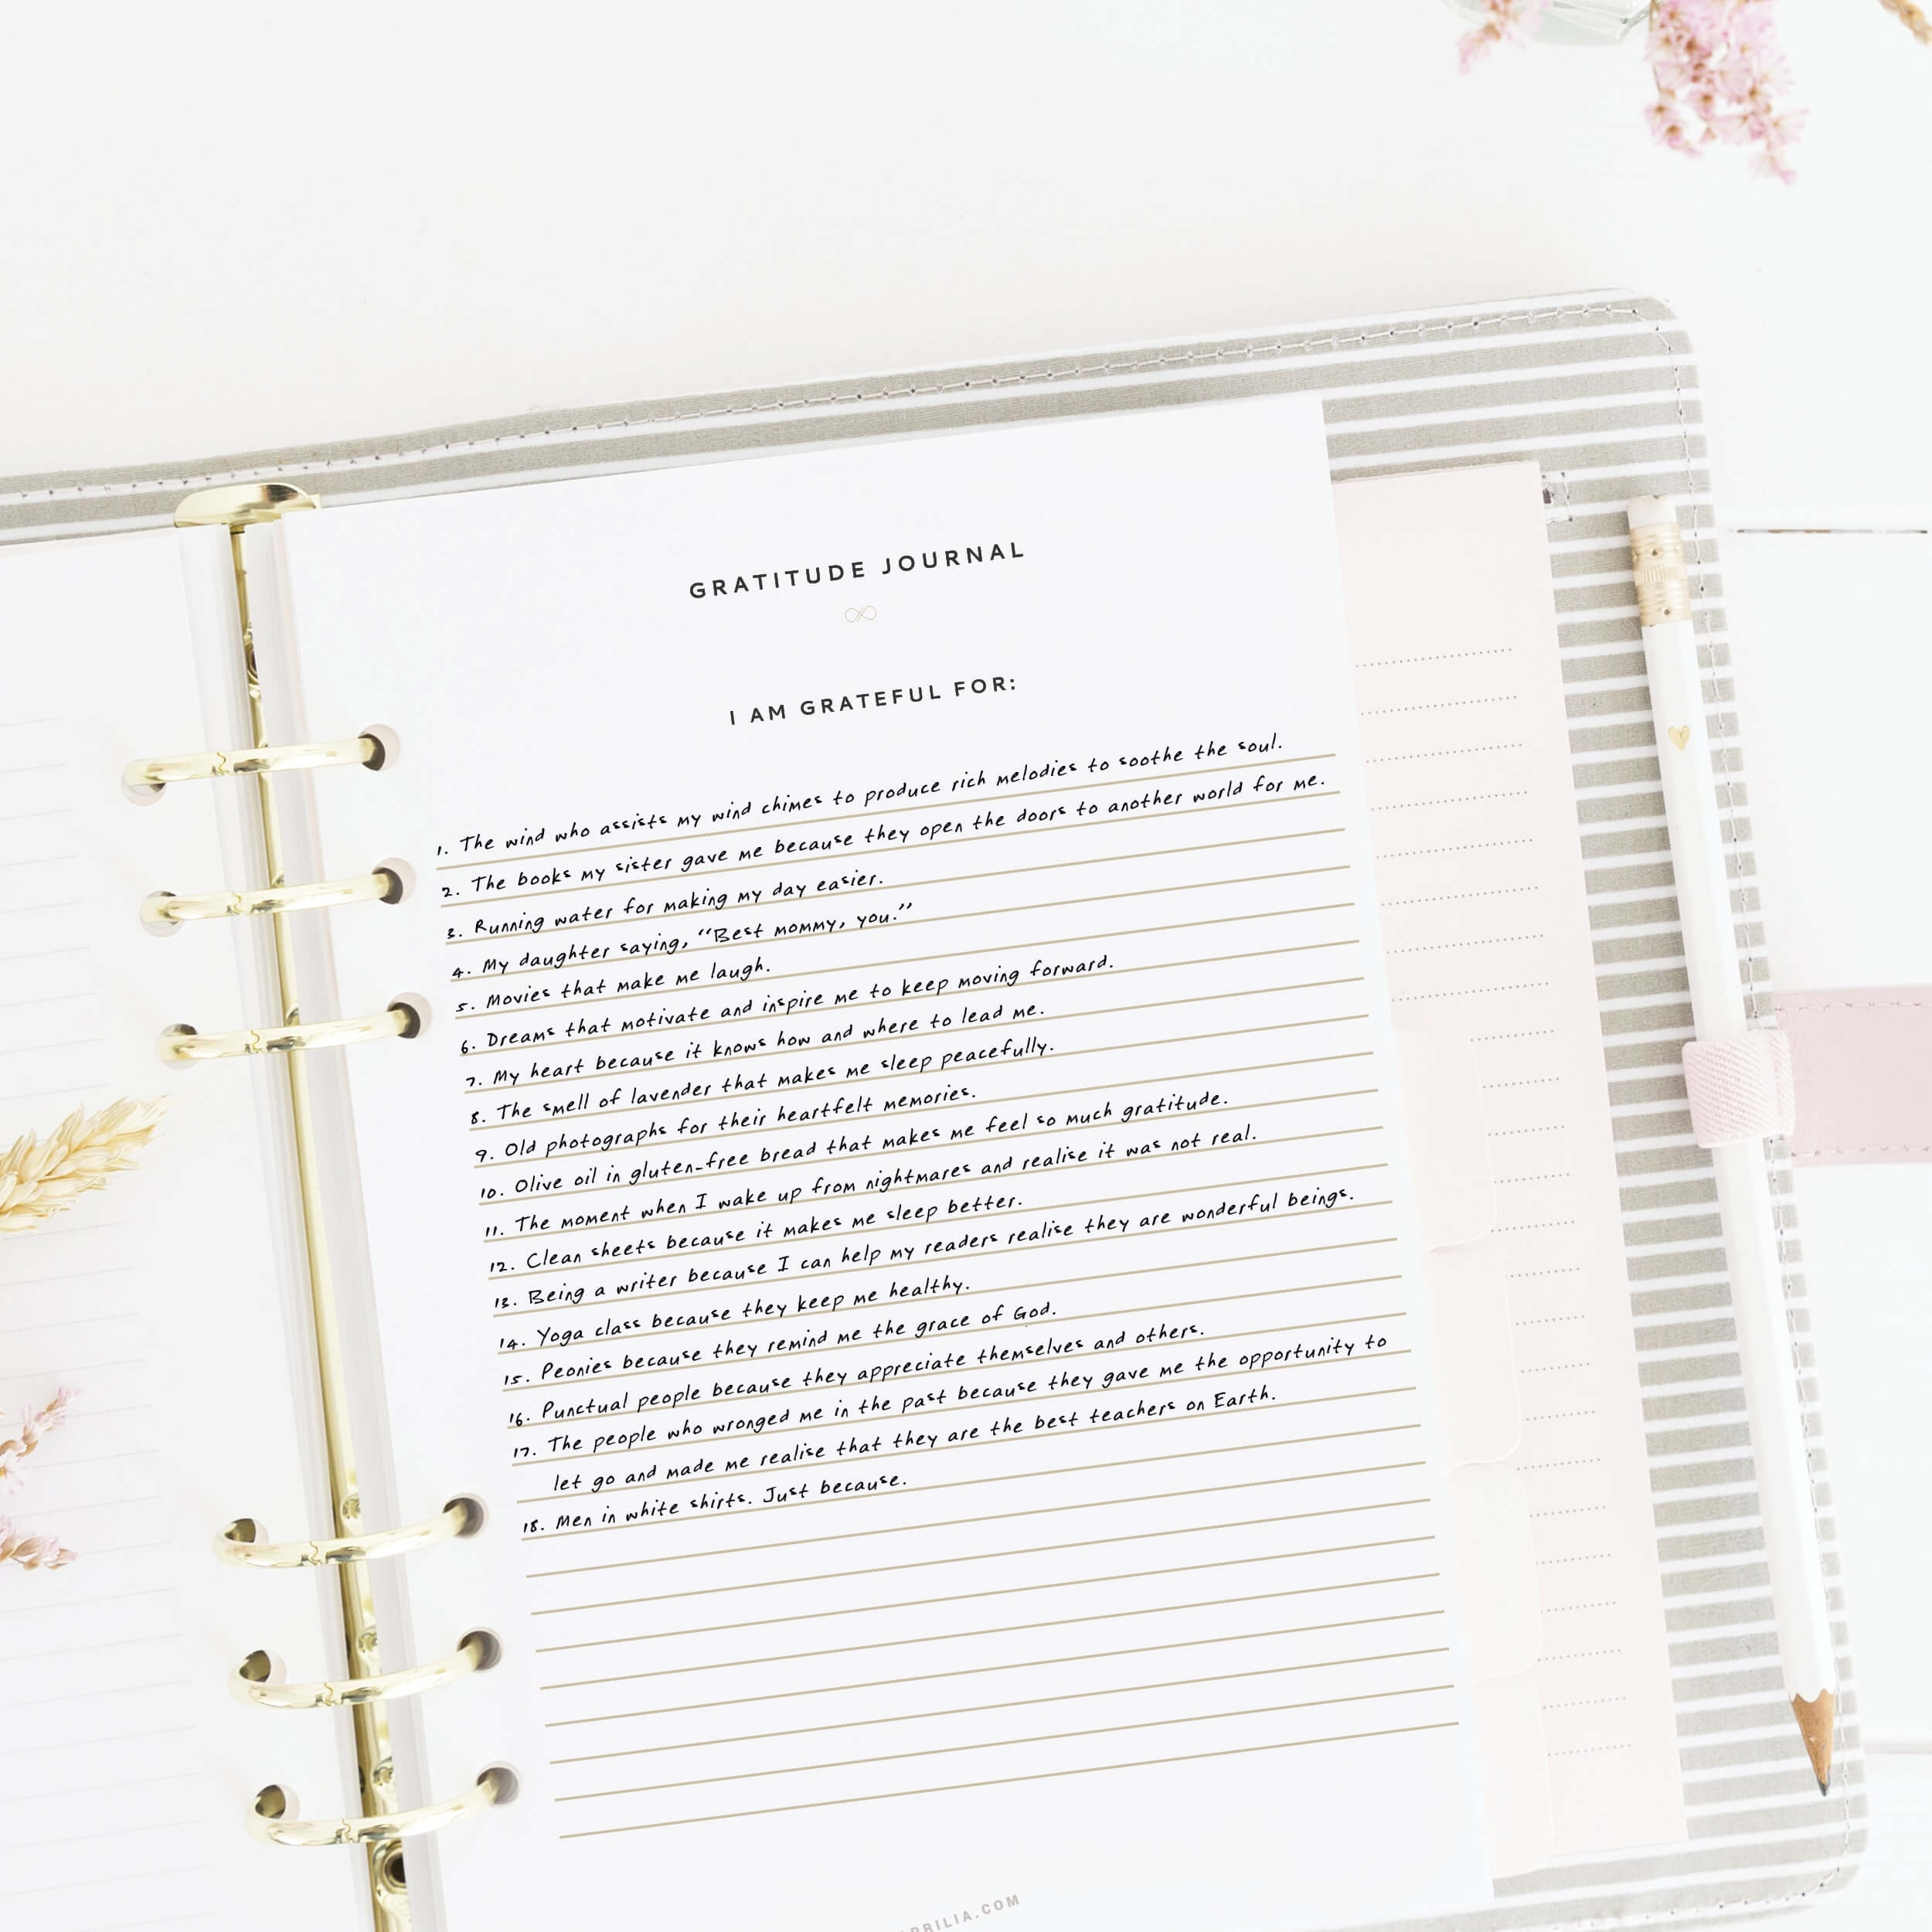 GRATITUDE JOURNAL
I AM GRATEFUL FOR:
1. The wind who assists my wind chimes to produce rich melodies to soothe the soul.
2. The books my sister gave me because they open the doors to another world for me.
3. Running water for making my day easier.
4. My daughter saying, “Best mommy, you.”
5. Movies that make me laugh.
6. Dreams that motivate and inspire me to keep moving forward.
7. My heart because it knows how and where to lead me.
8. The smell of lavender that makes me sleep peacefully.
9. Old photographs for their heartfelt memories.
10. Olive oil in gluten-free bread that makes me feel so much gratitude.
11. The moment when I wake up from nightmares and realise it was not real.
12. Clean sheets because it makes me sleep better.
13. Being a writer because I can help my readers realise they are wonderful beings.
14. Yoga class because they keep me healthy.
15. Peonies because they remind me the grace of God.
16. Punctual people because they appreciate themselves and others.
17. The people who wronged me in the past because they gave me the opportunity to
let go and made me realise that they are the best teachers on Earth.
18. Men in white shirts. Just because.